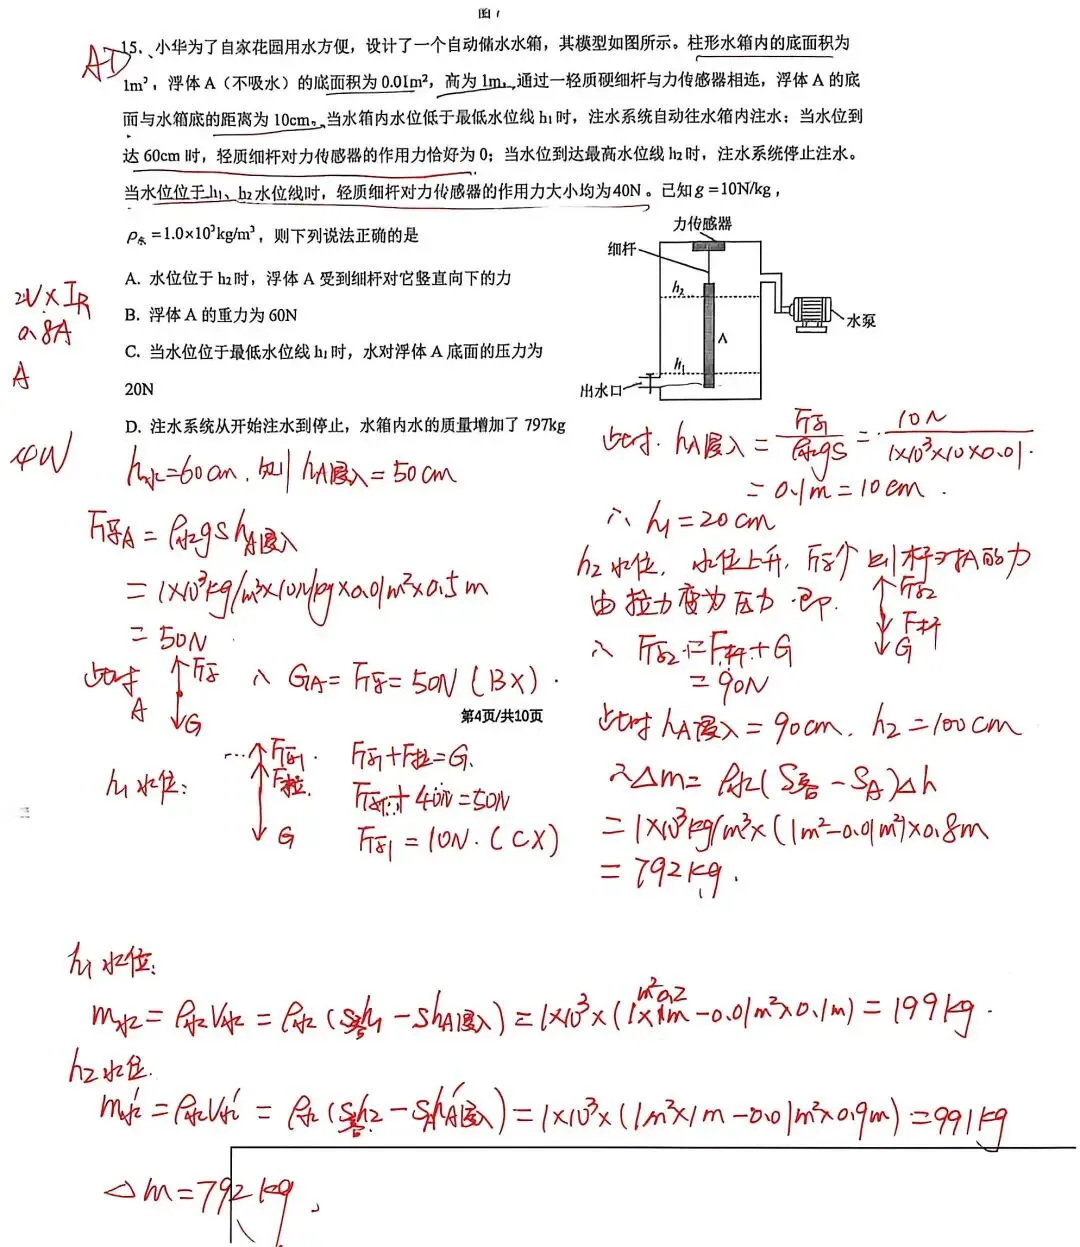 图 1
AD
15、小华为了自家花园用水方便，设计了一个自动储水水箱，其模型如图所示。柱形水箱内的底面积为
1m²，浮体 A（不吸水）的底面积为 0.01m²，高为 1m，通过一轻质硬细杆与力传感器相连，浮体 A 的底
面与水箱底的距离为 10cm。当水箱内水位低于最低水位线 h₁ 时，注水系统自动往水箱内注水；当水位到
达 60cm 时，轻质细杆对力传感器的作用力恰好为 0；当水位到达最高水位线 h₂ 时，注水系统停止注水。
当水位位于 h₁、h₂ 水位线时，轻质细杆对力传感器的作用力大小均为 40N 。已知 g＝10N/kg，
ρ水＝1.0×10³kg/m³，则下列说法正确的是
A. 水位位于 h₂ 时，浮体 A 受到细杆对它竖直向下的力
B. 浮体 A 的重力为 60N
C. 当水位位于最低水位线 h₁ 时，水对浮体 A 底面的压力为
20N
D. 注水系统从开始注水到停止，水箱内水的质量增加了 797kg
力传感器
细杆
h₂
A
水泵
h₁
出水口
2V×IR
0.8A
A
4W
h水=60cm，则 hA浸入=50cm
F浮A = ρ水gShA浸入
= 1×10³kg/m³×10N/kg×0.01m²×0.5m
= 50N
此时
A
F浮
G
∴ GA=F浮=50N (B×).
第4页/共10页
h₁水位:
F浮1
F拉
G
F浮1+F拉=G
F浮1+40N=50N
F浮1=10N. (C×)
此时. hA浸入 = F浮1/ρ水gS = 10N/1×10³×10×0.01.
= 0.1m=10cm.
∴ h₁=20cm
h₂水位，水位上升，F浮↑ 则杆对A的力
由拉力变为压力.即.
F浮2
F杆
G
∴ F浮2=F杆+G
=90N
此时hA浸入=90cm. h₂=100cm
∴Δm=ρ水(S容-SA)Δh
=1×10³kg/m³×(1m²-0.01m²)×0.8m
=792kg.
h₁水位:
m水=ρ水V水=ρ水(S容h₁-ShA浸入)=1×10³×(1m²×0.2m-0.01m²×0.1m)=199kg.
h₂水位.
m水'=ρ水V水'=ρ水(S容h₂-SAh'A浸入)=1×10³×(1m²×1m-0.01m²×0.9m)=991kg
Δm=792kg.